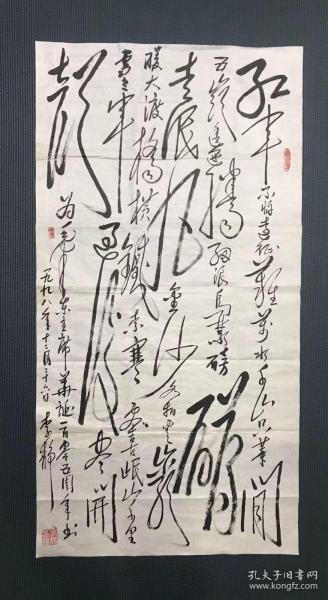 红军不怕远征难万水千山只等闲
五岭逶迤腾细浪乌蒙磅礴
走泥丸金沙水拍云崖
暖大渡桥横铁索寒更喜岷山千里
雪三军过后尽开
颜
为毛泽东主席华诞一百零五周年书
一九九八年十二月二十六日
孔夫子旧书网